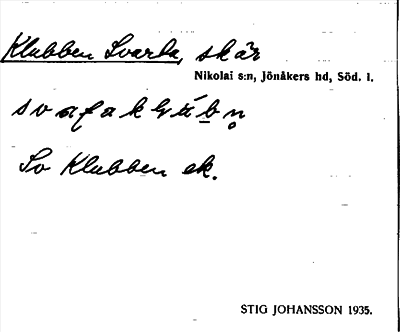 Klubben Svarta, skär
Nikolai s:n, Jönåkers hd, Söd. l.
So Klubben ek.
STIG JOHANSSON 1935.